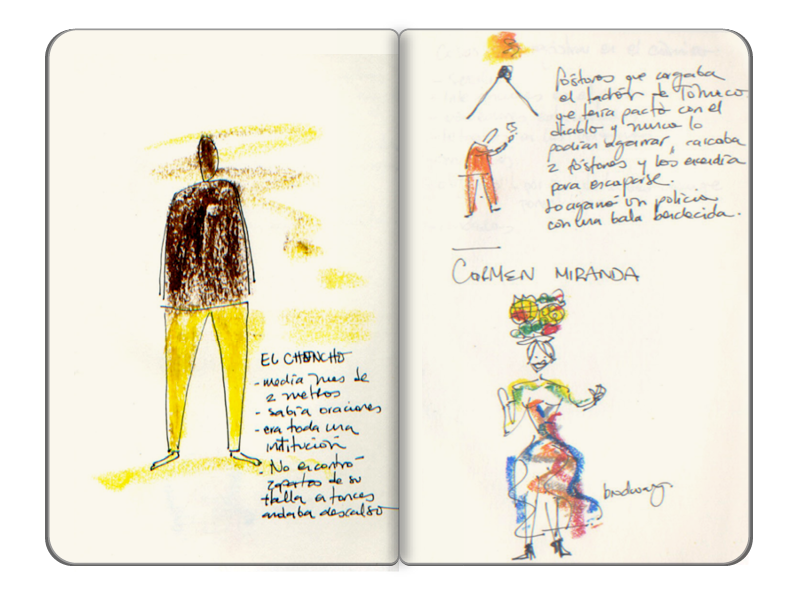 EL CHONCHO
- media mas de
2 metros
- sabía oraciones
- era toda una
intitución
- No encontró
zapatos de su
talla entonces
andaba descalso
fósforos que cargaba
el ladrón de Tomaco
que tenía pacto con el
diablo y nunca lo
podían agarrar, rascaba
2 fósforos y los encendía
para escaparse.
Lo agarró un policía
con una bala bendecida.
CORMEN MIRANDA
brodway.